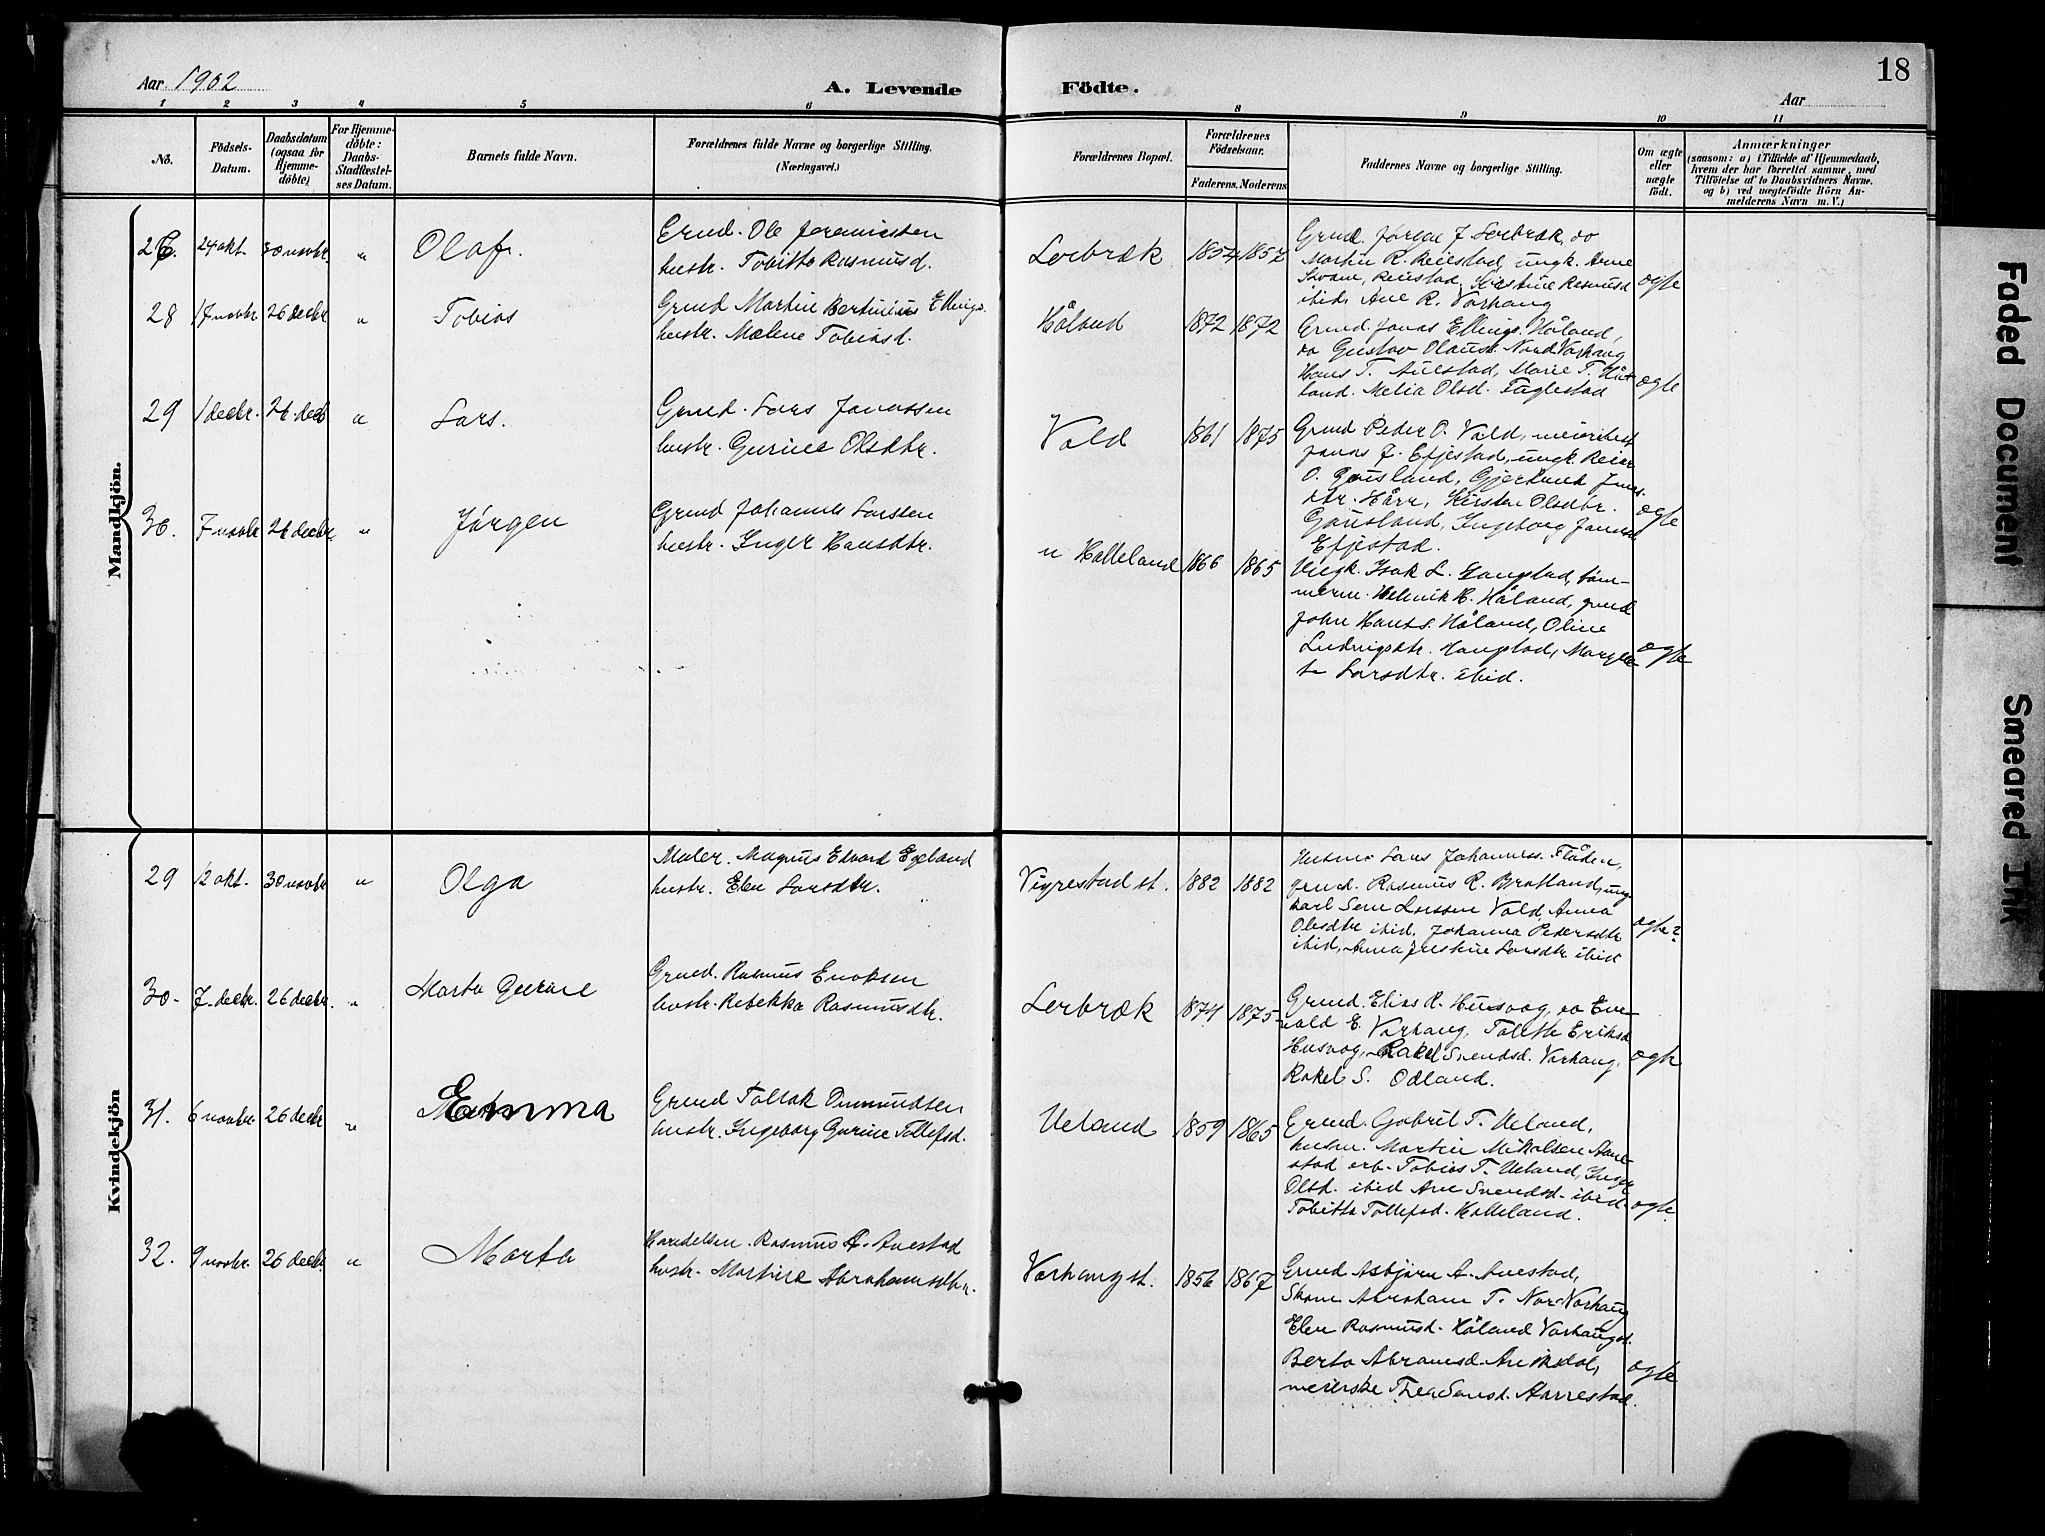 18
Aar 1902
A. Levende
Födte.
Aar
1 2 3 4 5 6 8 9 10 11
No.
Födsels-
Datum.
Daabsdatum
(ogsaa for
Hjemme-
döbte)
For Hjemme-
döbte:
Daabs-
Stadfæstel-
ses Datum.
Barnets fulde Navn.
Forældrenes fulde Navne og borgerlige Stilling.
(Næringsvei.)
Forældrenes Bopæl.
Forældrenes
Födselsaar.
Faderens. Moderens
Faddernes Navne og borgerlige Stilling.
Om ægte
eller
uægte
födt.
Anmærkninger
(saasom: a) i Tilfælde af Hjemmedaab,
hvem der har forrettet samme, med
Tilföielse af to Daabsvidners Navne.
og b) ved uægtefödte Börn An-
melderens Navn m. V.)
Mandkjön.
24 okt. 30 novbr. " Olaf.
Grud. Ole
hustr. Tobitta Rasmusd.
Lerbræk 1857
Grud. Jørgen J. Lerbræk, do
Martin R. Reiestad, ungk. Arne
Reiestad, Rasmusd
ibid, Ane R. Varhaug
ægte
28 17 novbr 26 decbr " Tobias
Grud Martin Bertinius Ellings.
hustr. Malene Tobiasd.
Håland 1872 1872
Grud. Jonas Ellings. Håland,
do Gustav Olaus. Nord Varhaug
Hans T. Auestad, Marie T. Hå-
land. Melia Olsd. Fuglestad
ægte
29 1 decbr. 26 decb " Lars.
Grud. Lars Janassen
hustr. Gurine Olsdtr.
Vald 1861 1875
Grud Peder O. Vald, meieribest
Janas J. Efjestad, ungk. Reier
O. Gausland, Gjertrud Janas-
dtr. Hårr, Kirsten Olsdtr.
Gausland, Ingeborg Janasd
Efjestad.
ægte
30. 7 novbr 26 decbr. " Jørgen
Grud Johannes Larsen
hustr. Inger Hansdtr.
n Halleland 1866 1865
Ungk. Isak L. Haugstad, tøm-
merm. Helmik H. Håland, grud
John Hans. Håland, Oline
Ludvigsdtr. Haugstad, Margre-
te Larsdtr. ibid.
ægte
Kvindekjön
29 12 okt. 30 novbr " Olga
Maler. Magnus Edvard Egeland
hustr. Elen Larsdtr.
Vigrestad st. 1882 1882
Husm. Lars Johanness. Flåden,
grud. Rasmus R. Bratland, ung
karl Sem Larssen Vald, Anna
Olesdtr ibid, Johanna Pedersdtr
ibid, Anna Larsdtr ibid
ægte?
30. 7. decbr. 26 decbr. " Marta Gurine
Grud. Rasmus Enoksen
hustr. Rebekka Rasmusdtr.
Lerbræk 1874 1875
Grud. Elias R. Husvog, do Ene-
vald E. Varhaug, Tolette Eriksd
Husvog, Rakel Svendsd. Varhaug,
Rakel S. Odland.
ægte
31. 6 novbr. 26 decbr " Emma
Grud Tollak Ommundsen
hustr. Ingeborg Gurine Tollefsd.
Ueland 1859 1865
Grud. Gabriel T. Ueland,
husm. Martin Mikalsen
stad arb. Tobias T. Ueland, Inger
Olsd. ibid Ane Svendsd. ibid.
Tobitta Tollefsd. Halleland.
ægte.
32. 9 novbr. 26 decbr. " Marta
Handelsm. Rasmus A. Auestad
hustr. Martine Abrahamsdtr.
Varhaug st. 1856 1867
Grud Asbjørn A. Auestad,
Skom Abraham T. Nor Varhaug
Elen Rasmusd. Håland Varhaug st.
Berta Abramsd. Aniksdal,
meierske Thea Semsd. Aarrestad.
ægte
Faded Document
Smeared Ink